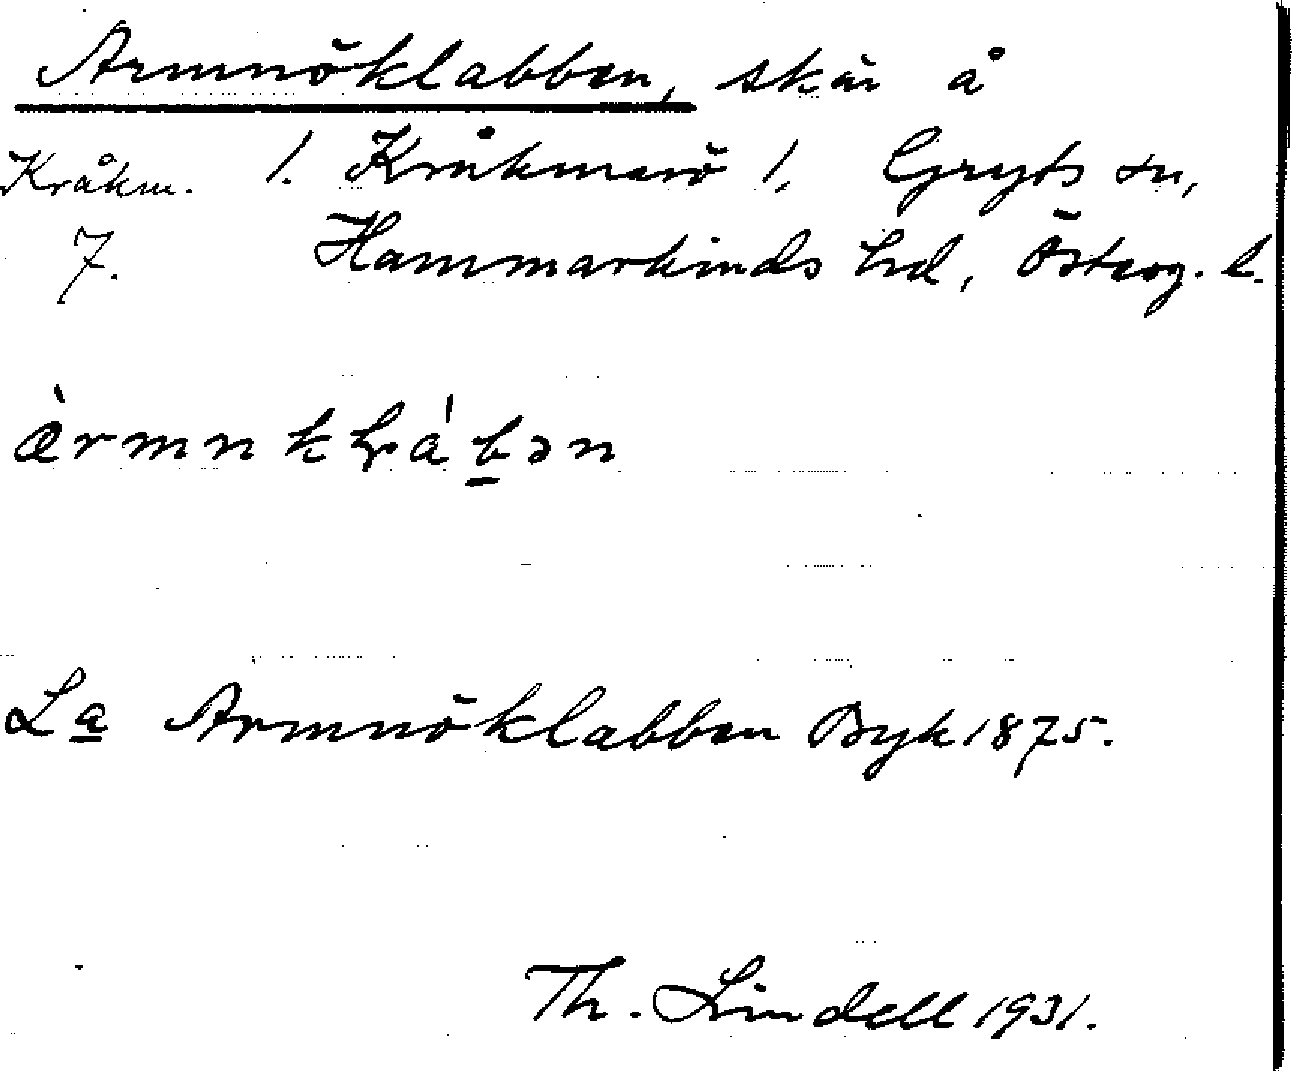 Armnöklabben, skär å
Kråkm. 1. Kråkmarö 1, Gryts sn,
7. Hammarkinds hd, Österg. l.
àrmnkḷábən
La Armnöklabben Byk 1875.
Th. Lindell 1931.